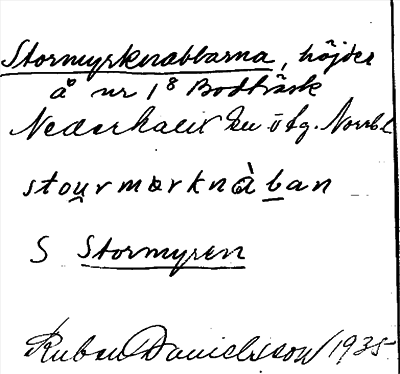 Stormyrknabbarna, höjder
å nr 1⁸ Bodträsk
Nederkalix sn Norrb.
stou̯rmørknàban
S Stormyren
Ruben Danielsson 1935